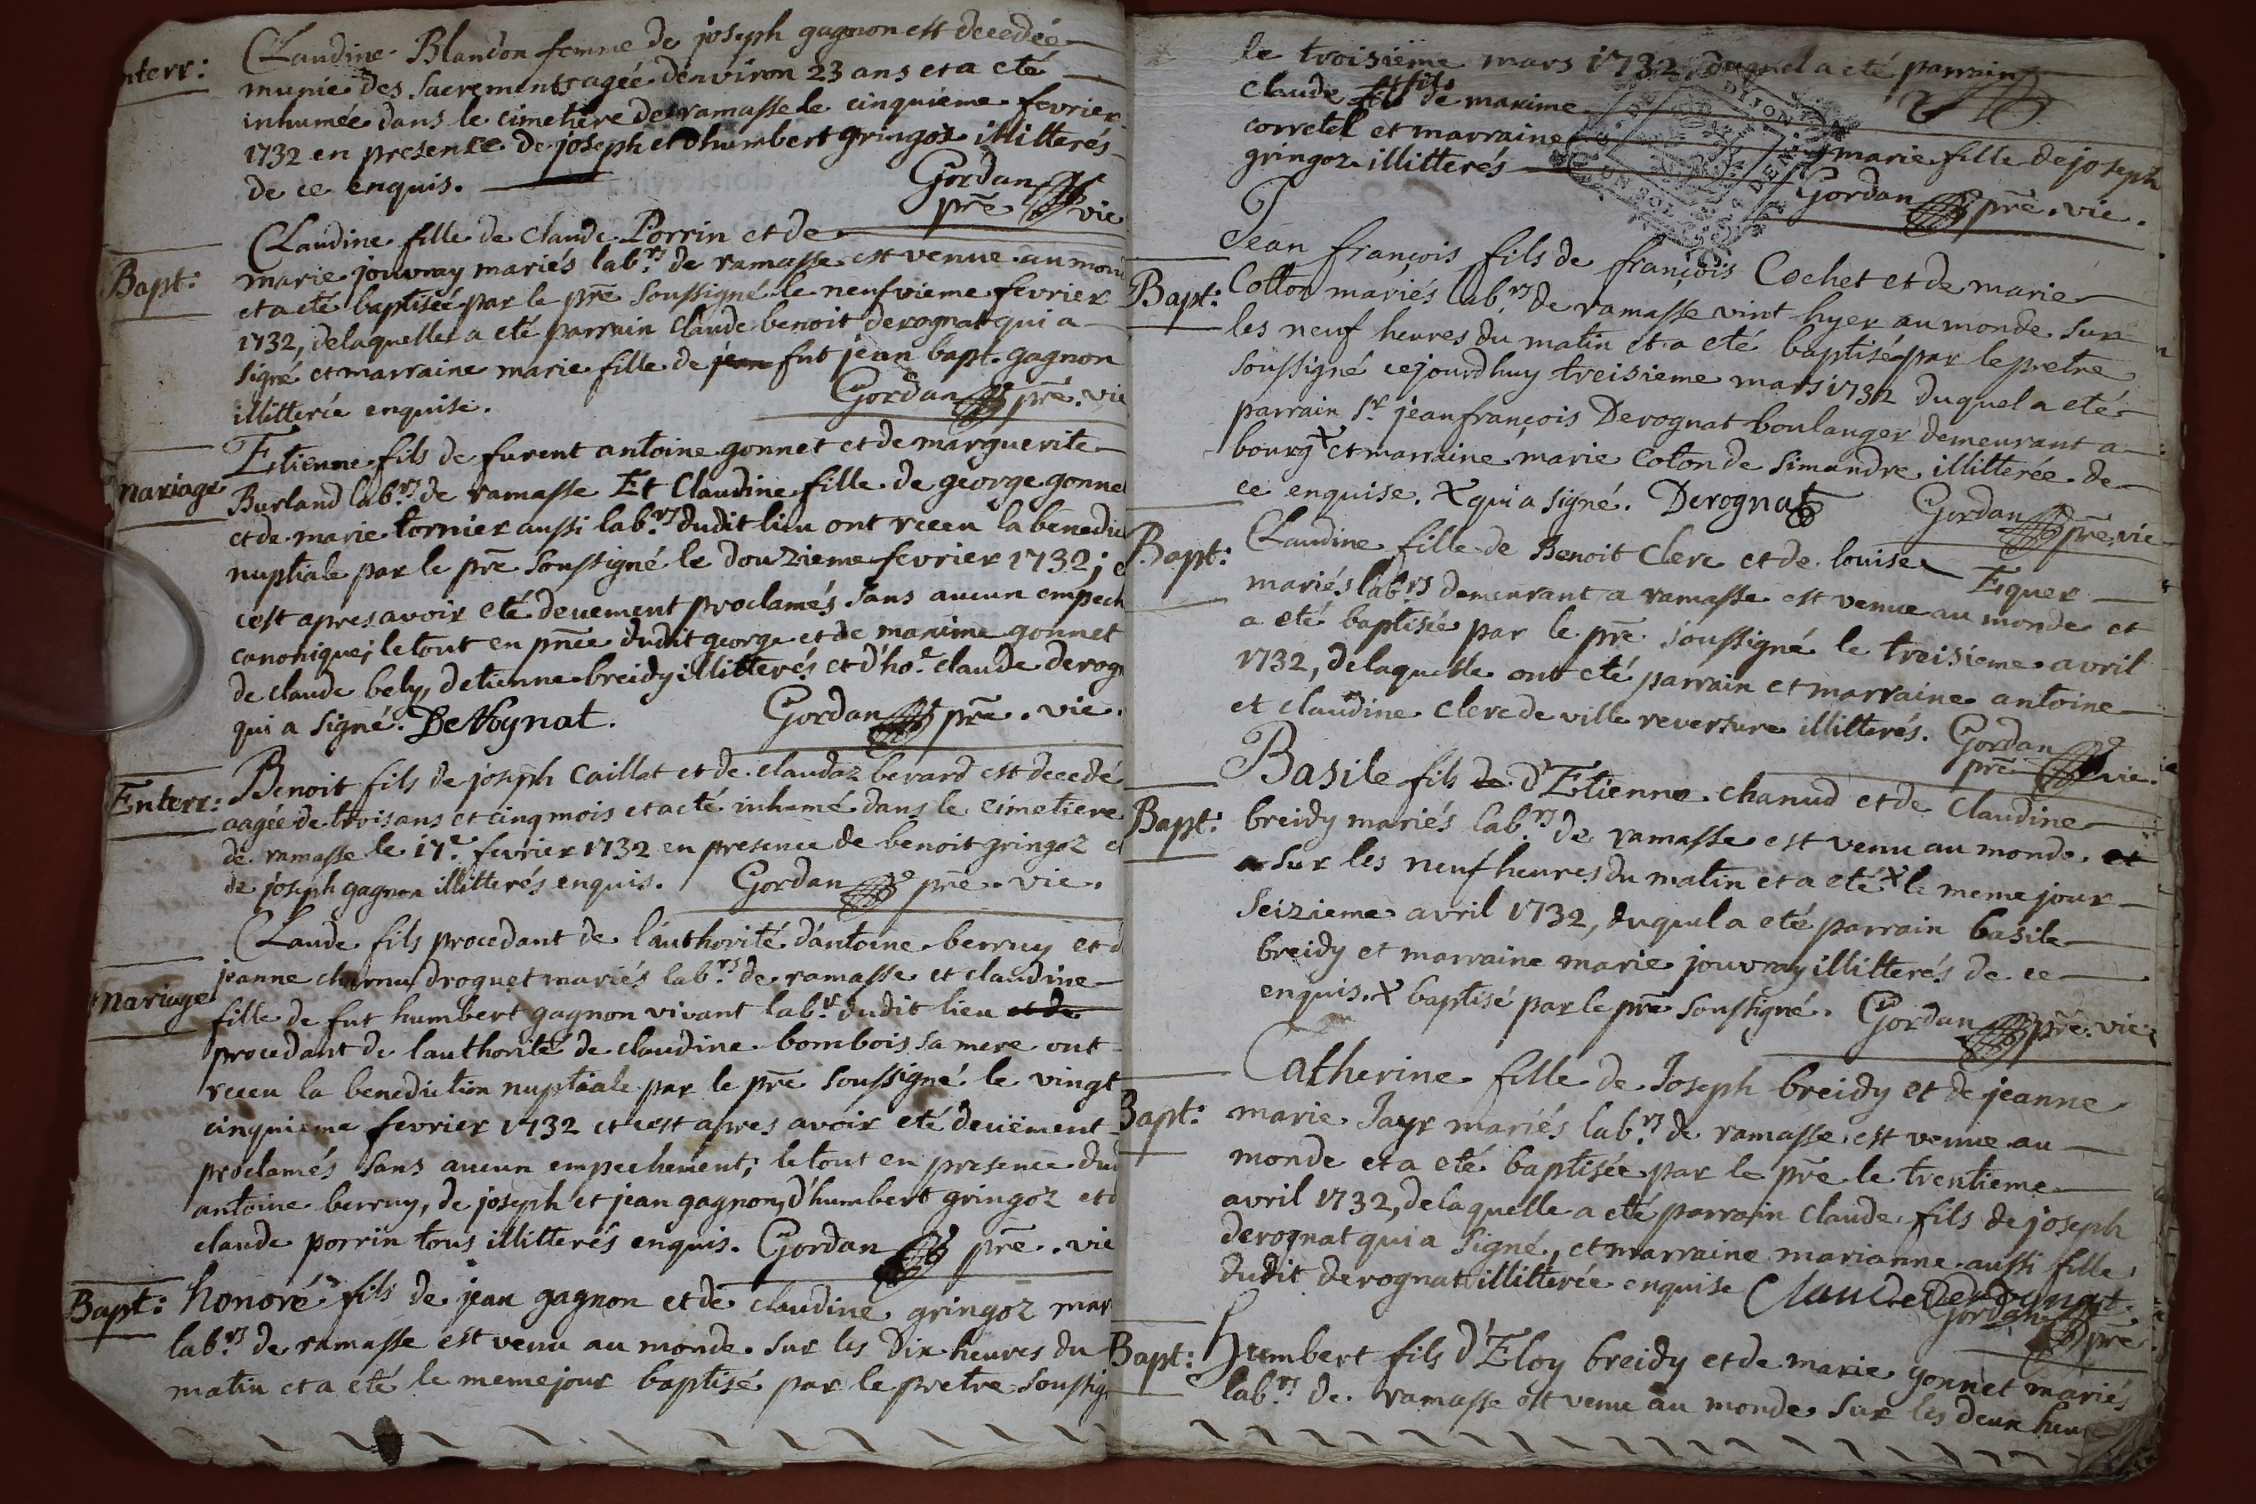 nterr:
Claudine Blandon femme de joseph gagnon est decedée
munie des Sacrements agée denviron 23 ans et a eté
inhumée dans le cimetiere de ramasse le cinquieme fevrier
1732 en presence de joseph et dhumbert gringoz illitterés
de ce enquis. Gordan
pre vic
Bapt:
Claudine fille de claude Porrin et de
marie jouvray mariés labrs de ramasse est venue au mond
et a eté baptisée par le pre Soussigné le neufvieme fevrier
1732, delaquelle a eté parrain claude benoit derognat qui a
signé et marraine marie fille de jean fut jean bapt. gagnon
illitterée enquise. Gordan pre. vic
mariage
Etienne fils de furent antoine gonnet et de marguerite
Burland labrs de ramasse Et Claudine fille de george gonne
et de marie tornier aussi labrs dudit lieu ont receu la benedic
nuptiale par le pre Soussigné le douzieme fevrier 1732; e
cest apres avoir eté deuement proclamés sans aucun empech
canonique; le tout en pnce dudit george et de maxime gonnet
de claude bely, detienne breidy illitterés et d'ho.e claude derog
qui a signé. DeRognat. Gordan pre. vic.
Enterr:
Benoit fils de joseph Caillat et de claudaz berard est decedé
aagée de trois ans et cinq mois et a eté inhumé dans le cimetiere
de ramasse le 17e. fevrier 1732 en presence de benoit gringoz e
de joseph gagnon illitterés enquis. Gordan pre. vic.
mariage
Claude fils procedant de l'authorité d'antoine berruy et d
jeanne droguet mariés labrs de ramasse et claudine
fille de fut humbert gagnon vivant labr dudit lieu et de
procedant de lauthorité de claudine bombois sa mere ont
receu la benediction nuptiale par le pre Soussigné le vingt
cinquieme fevrier 1732 et cest apres avoir eté deuëment
proclamés sans aucun empechement; le tout en presence dud
antoine berruy, de joseph et jean gagnon, d'humbert gringoz et d
claude porrin tous illitterés enquis. Gordan pre. vic
Bapt:
honoré fils de jean gagnon et de claudine gringoz mar
labrs de ramasse est venu au monde sur les dix heures du
matin et a eté le meme jour baptisé par le pretre Soussig
le troisieme mars 1732, duquel a eté parrain
claude fils de maxime
corretel et marraine marie fille de joseph
gringoz illitterés Gordan pre. vic.
Bapt:
Jean françois fils de françois Cochet et de marie
Cotton mariés labrs de ramasse vint hyer au monde sur
les neuf heures du matin et a eté baptisé par le pretre
soussigné cejourdhuy treisieme mars 1732 duquel a eté
parrain Sr jean françois Derognat boulanger demeurant a
bourg x et marraine marie Coton de Simandre illitterée de
ce enquise. x qui a signé. Derognat Gordan pre. vic
Bapt:
Claudine fille de Benoit Clerc et de louise Fiquer
mariés labrs demeurant a ramasse est venue au monde et
a eté baptisée par le pre soussigné le troisieme avril
1732, delaquelle ont eté parrain et marraine antoine
et claudine clerc de ville reversure illitterés. Gordan
pre vic.
Bapt:
Basile fils de d'Etienne chanud et de Claudine
breidy mariés labrs de ramasse est venu au monde et
a sur les neuf heures du matin et a eté x le meme jour
Seizieme avril 1732, duquel a eté parrain basile
breidy et marraine marie jouvray illitterés de ce
enquis. x baptisé par le pre Soussigné. Gordan pre. vic.
Bapt:
Catherine fille de Joseph breidy et de jeanne
marie Jayr mariés labrs de ramasse est venue au
monde et a eté baptisée par le pre le trentieme
avril 1732, delaquelle a eté parrain claude fils de joseph
derognat qui a signé, et marraine marianne aussi fille
dudit derognat illitterée enquise Claude Derognat
Gordan
pre
Bapt:
Humbert fils d'Eloy breidy et de marie gonnet mariés
labrs de ramasse est venu au monde sur les deux heur